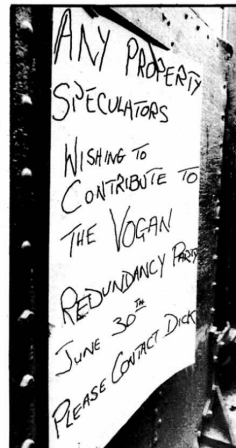 ANY PROPERTY
SPECULATORS
WISHING TO
CONTRIBUTE TO
THE VOGAN
REDUNDANCY PARTY
JUNE 30TH
PLEASE CONTACT DICK